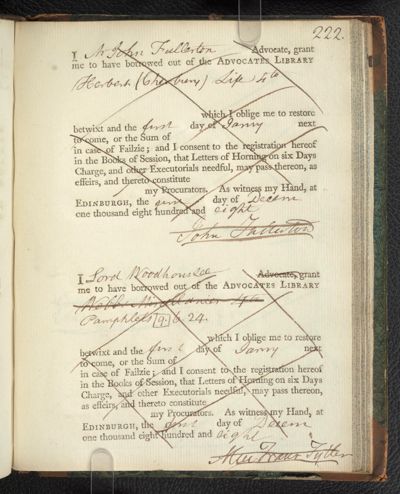 222.
I Mr John Fullerton Advocate, grant
me to have borrowed out of the ADVOCATES LIBRARY
Herbert (Cherbury) Life 4to
which I oblige me to restore
betwixt and the first day of Janry next
to come, or the Sum of
in case of Failzie; and I consent to the registration hereof
in the Books of Session, that Letters of Horning on six Days
Charge, and other Executorials needful, may pass thereon, as
effeirs, and thereto constitute
my Procurators. As witness my Hand, at
EDINBURGH, the day of Decem
one thousand eight hundred and eight
John Fullerton
I Lord Woodhouselee Advocate, grant
me to have borrowed out of the ADVOCATES LIBRARY
4to
Pamphlets 9. 6. 24.
which I oblige me to restore
betwixt and the first day of Janry next
to come, or the Sum of
in case of Failzie; and I consent to the registration hereof
in the Books of Session, that Letters of Horning on six Days
Charge, and other Executorials needful, may pass thereon,
as effeirs, and thereto constitute
my Procurators. As witness my Hand, at
EDINBURGH, the first day of Decem
one thousand eight hundred and eight
Alex Fraser Tytler